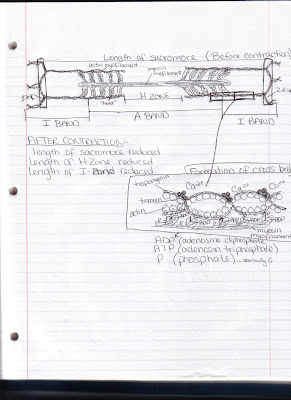 Length of sacromore (Before contraction)
actin myofilament
myosin
myofilament
"head"
H ZONE
I BAND
A BAND
I BAND
AFTER CONTRACTION:
length of sacromore reduced
Length of H Zone reduced
Length of I-Band reduced
Formation of cross
tropomyosin
Ca2+
Ca2+
troponin
actin
myosin
myofilament
ADP (adenosine diphosphate)
ATP (adenosin triphosphate)
P (phosphate)...obviously